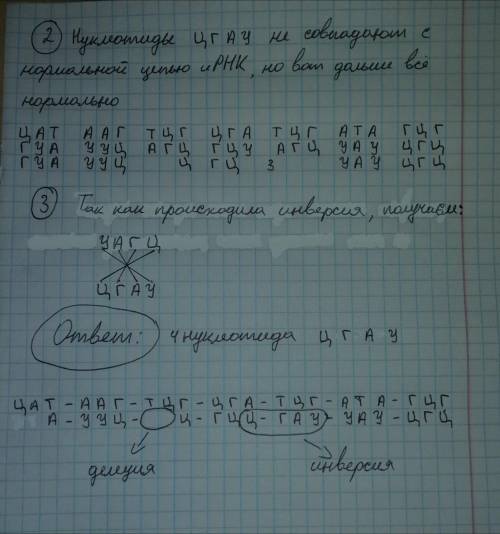 2 Нуклеотиды ЦГАУ не совпадают с
нормальной цепью иРНК, но вот дальше всё
нормально
ЦАТ ААГ ТЦГ ЦГА ТЦГ АТА ГЦГ
ГУА УУЦ АГЦ ГЦУ АГЦ УАУ ЦГЦ
ГУА УУЦ Ц ГЦ З УАУ ЦГЦ
3 Так как происходила инверсия, получаем:
УАГЦ
ЦГАУ
Ответ: 4 нуклеотида ЦГАУ
ЦАТ - ААГ - ТЦГ - ЦГА - ТЦГ - АТА - ГЦГ
А - УУЦ - Ц - ГЦЦ - ГАУ - УАУ - ЦГЦ
делеция инверсия